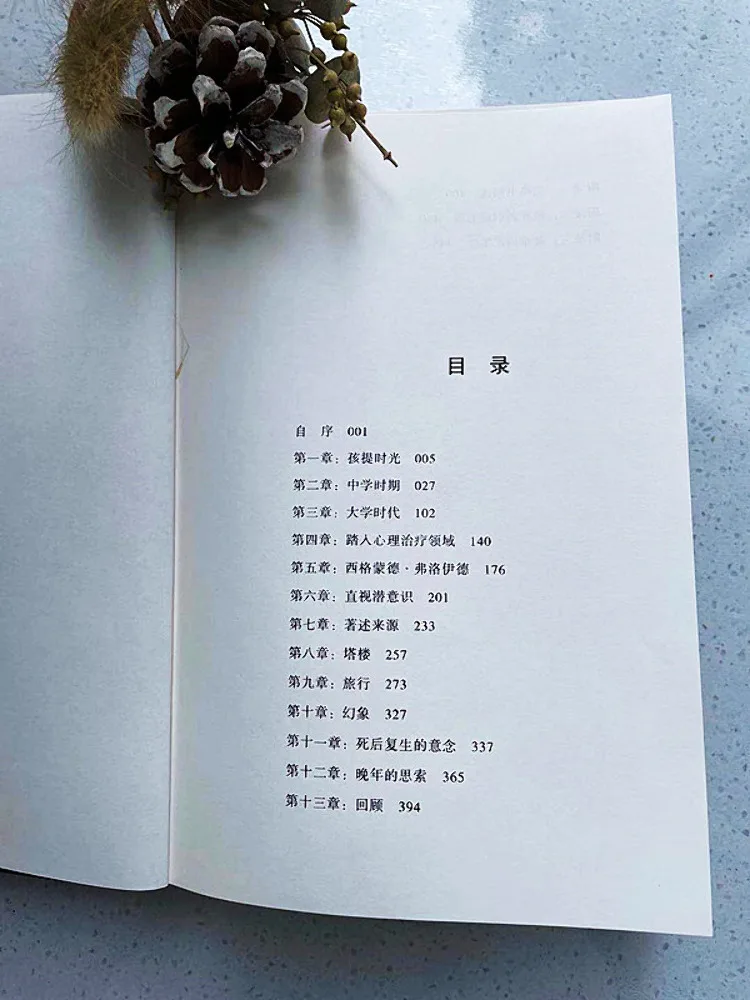 目 录
自 序 001
第一章：孩提时光 005
第二章：中学时期 027
第三章：大学时代 102
第四章：踏入心理治疗领域 140
第五章：西格蒙德·弗洛伊德 176
第六章：直视潜意识 201
第七章：著述来源 233
第八章：塔楼 257
第九章：旅行 273
第十章：幻象 327
第十一章：死后复生的意念 337
第十二章：晚年的思索 365
第十三章：回顾 394